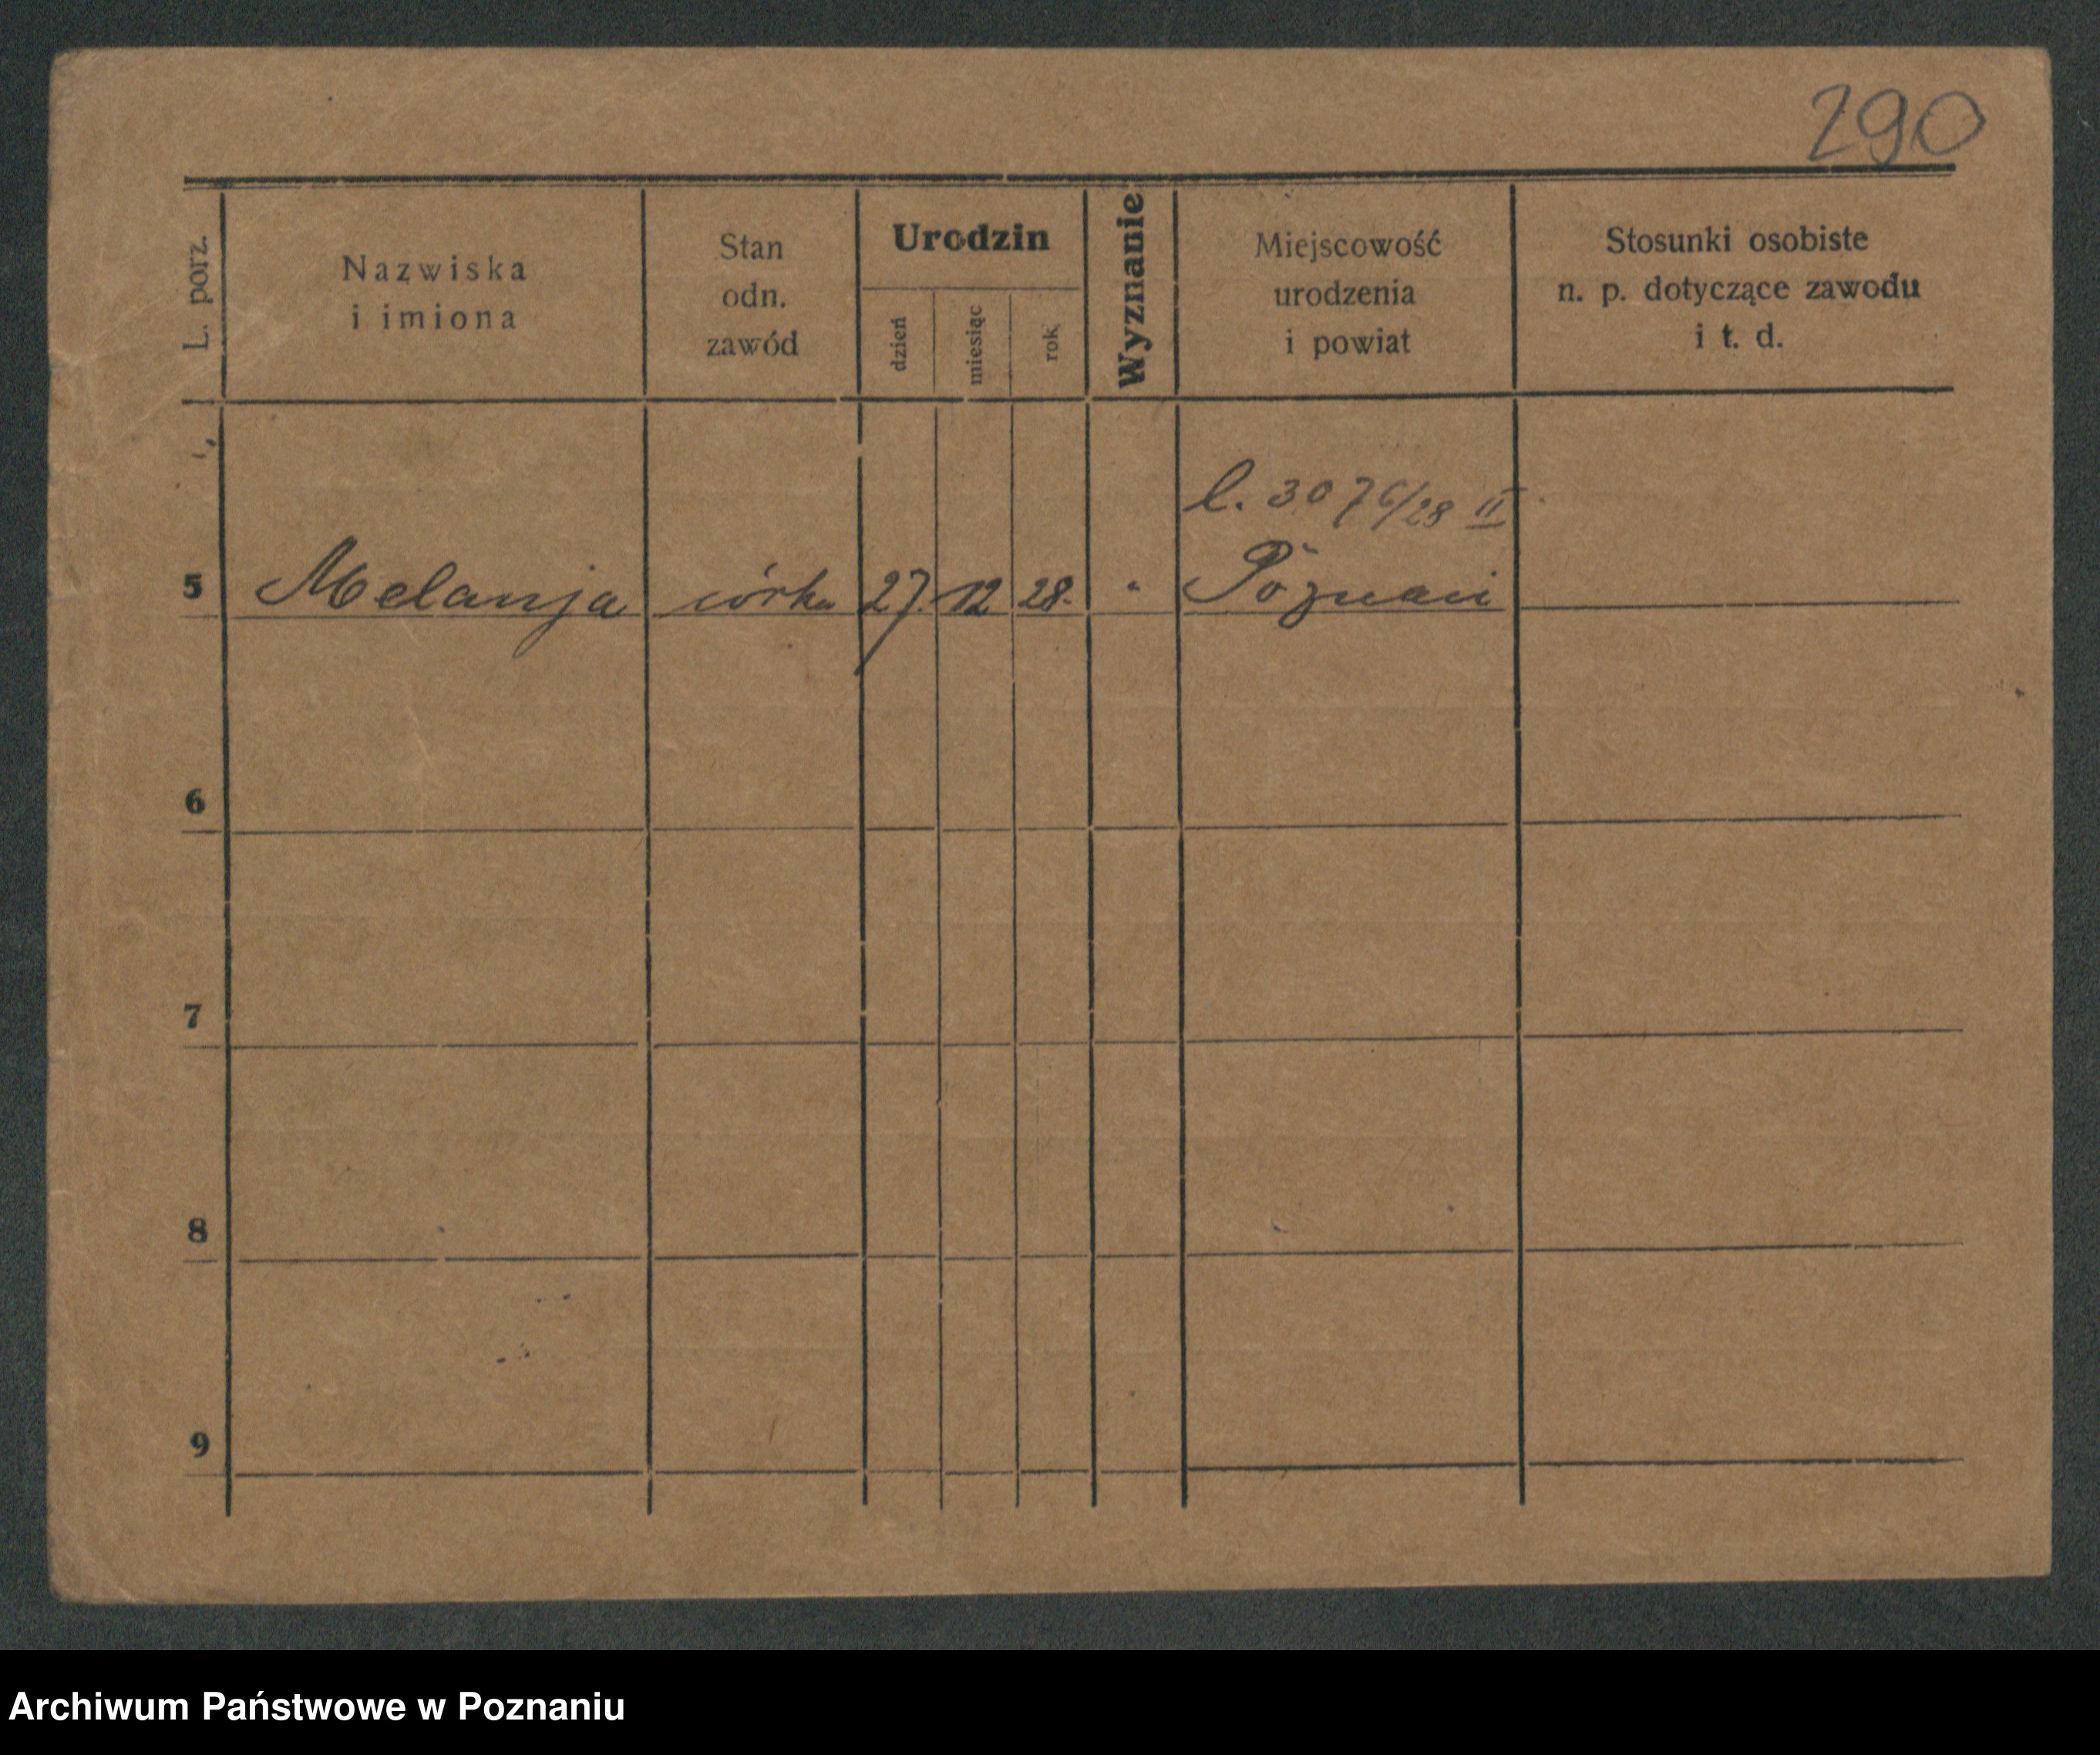 290
L. porz.
Nazwiska
i imiona
Stan
odn.
zawód
Urodzin
dzień
miesiąc
rok
Wyznanie
Miejscowość
urodzenia
i powiat
Stosunki osobiste
n. p. dotyczące zawodu
i t. d.
l. 3076/28 II
5 Melanja córka 27. 12 28. " Poznań
6
7
8
9
Archiwum Państwowe w Poznaniu